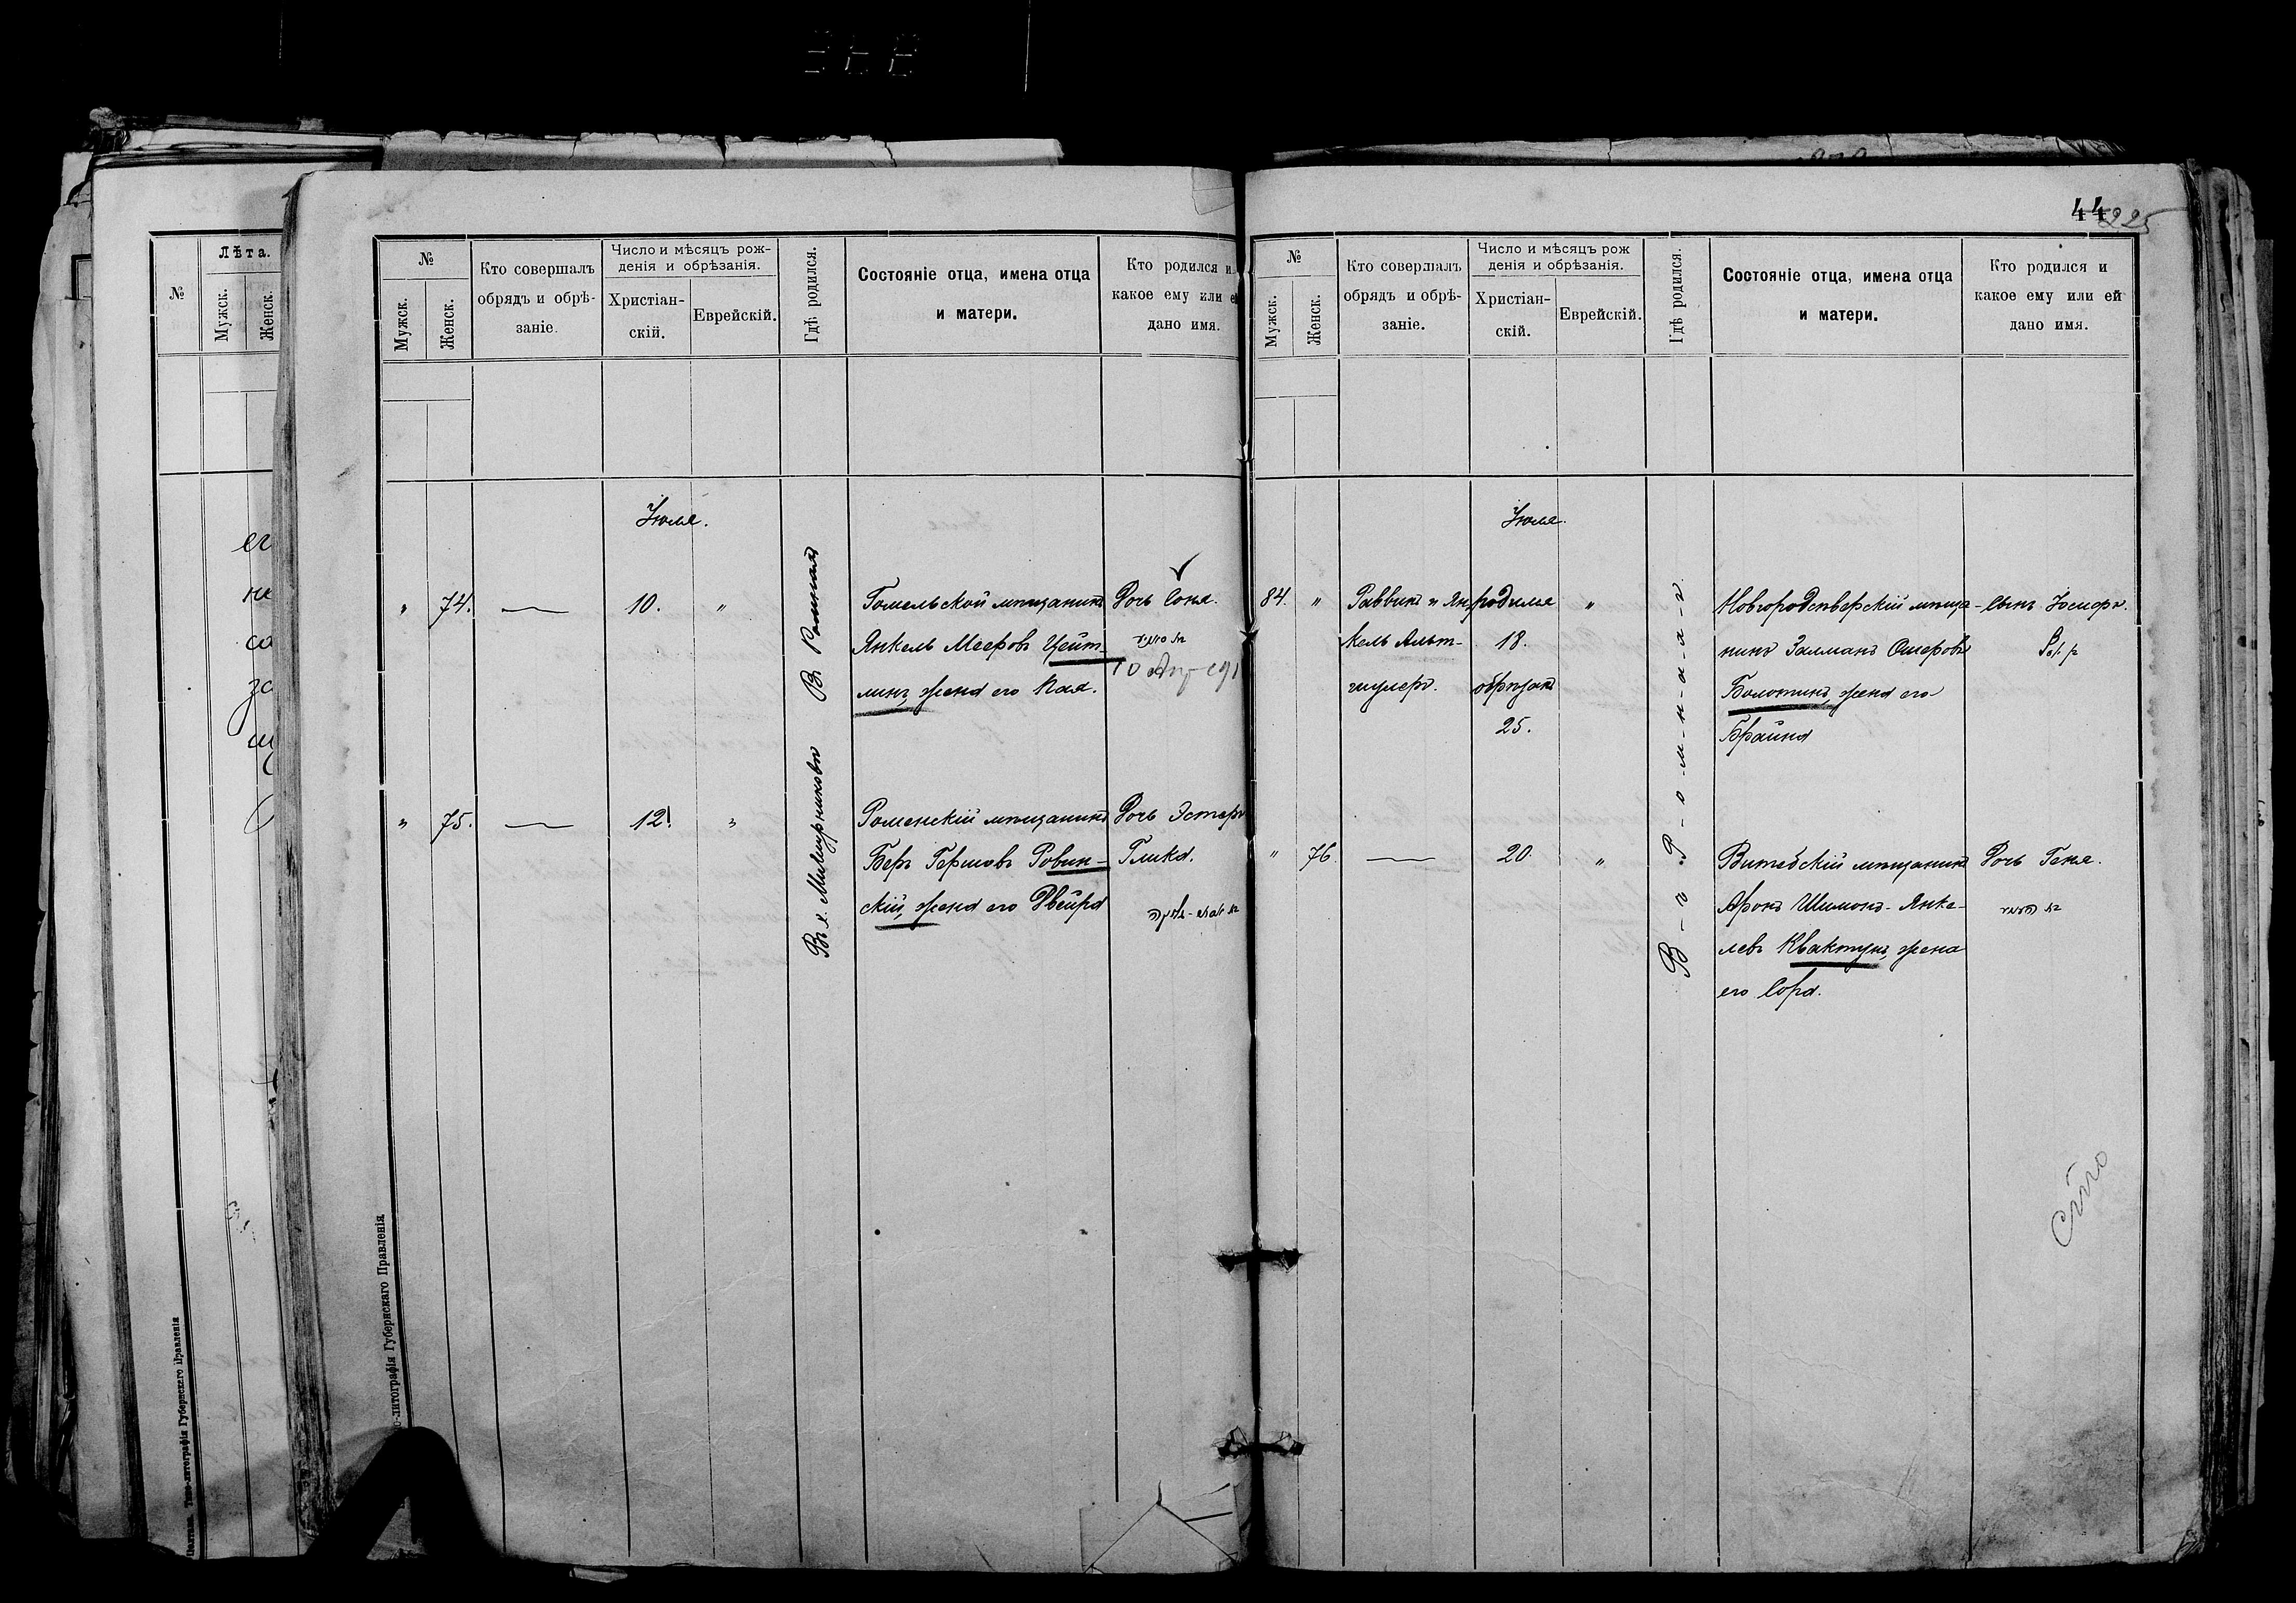 Лѣта.
№
Мужск.
Женск.
№
Мужск.
Женск.
Кто совершалъ
обрядъ и обрѣ-
заніе.
Число и мѣсяцъ рож-
денія и обрѣзанія.
Христіан-
скій.
Еврейскій.
Гдѣ родился.
Состояніе отца, имена отца
и матери.
Кто родился и
какое ему или ей
дано имя.
Іюля.
" 74. — 10. "
Въ Ромнахъ
Гомельской мѣщанинъ
Янкель Мееровъ Цейт-
линъ, жена его Хая.
Дочь Соня.
" 75. — 12. "
Роменскій мѣщанинъ
Беръ Гершовъ Ровин-
скій, жена его Двейра
Дочь Эстеръ
Глика.
44
225
№
Мужск.
Женск.
Кто совершалъ
обрядъ и обрѣ-
заніе.
Число и мѣсяцъ рож
денія и обрѣзанія.
Христіан-
скій.
Еврейскій.
Гдѣ родился.
Состояніе отца, имена отца
и матери.
Кто родился и
какое ему или ей
дано имя.
Іюля.
84. "
Раввинъ и Ян
кель Альт-
шулеръ.
родился
18.
обрѣзанъ
25.
"
В-ъ Р-о-м-н-а-х-ъ
Новгородсѣверскій мѣща-
нинъ Залманъ Ошеровъ
Болотинъ, жена его
Брайна
сынъ Іосифъ.
" 76. — 20. "
Витебскій мѣщанинъ
Аронъ Шимонъ-Янке-
левъ Квактунъ, жена
его Сора.
Дочь Геня.
о-литографія Губернскаго Правленія
Полтава. Типо-литографія Губернскаго Правленія